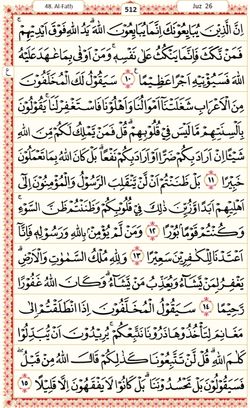 48. Al-Fath 512 Juz 26
اِنَّ الَّذِيْنَ يُبَايِعُوْنَكَ اِنَّمَا يُبَايِعُوْنَ اللّٰهَ ؕ يَدُ اللّٰهِ فَوْقَ اَيْدِيْهِمْ ۚ
فَمَنْ نَّكَثَ فَاِنَّمَا يَنْكُثُ عَلٰى نَفْسِهٖ ۚ وَمَنْ اَوْفٰى بِمَا عٰهَدَ عَلَيْهُ
اللّٰهَ فَسَيُؤْتِيْهِ اَجْرًا عَظِيْمًا ۟ ۱۰ سَيَقُوْلُ لَكَ الْمُخَلَّفُوْنَ
مِنَ الْاَعْرَابِ شَغَلَتْنَاۤ اَمْوَالُنَا وَاَهْلُوْنَا فَاسْتَغْفِرْ لَنَا ۚ يَقُوْلُوْنَ
بِاَلْسِنَتِهِمْ مَّا لَيْسَ فِيْ قُلُوْبِهِمْ ؕ قُلْ فَمَنْ يَّمْلِكُ لَكُمْ مِّنَ اللّٰهِ
شَيْـًٔا اِنْ اَرَادَ بِكُمْ ضَرًّا اَوْ اَرَادَ بِكُمْ نَفْعًا ؕ بَلْ كَانَ اللّٰهُ بِمَا تَعْمَلُوْنَ
خَبِيْرًا ۱۱ بَلْ ظَنَنْتُمْ اَنْ لَّنْ يَّنْقَلِبَ الرَّسُوْلُ وَالْمُؤْمِنُوْنَ اِلٰۤى
اَهْلِيْهِمْ اَبَدًا وَّزُيِّنَ ذٰلِكَ فِيْ قُلُوْبِكُمْ وَظَنَنْتُمْ ظَنَّ السَّوْءِ ۖ
وَكُنْتُمْ قَوْمًاۢ بُوْرًا ۱۲ وَمَنْ لَّمْ يُؤْمِنْۢ بِاللّٰهِ وَرَسُوْلِهٖ فَاِنَّاۤ
اَعْتَدْنَا لِلْكٰفِرِيْنَ سَعِيْرًا ۱۳ وَلِلّٰهِ مُلْكُ السَّمٰوٰتِ وَالْاَرْضِ ؕ
يَغْفِرُ لِمَنْ يَّشَآءُ وَيُعَذِّبُ مَنْ يَّشَآءُ ؕ وَكَانَ اللّٰهُ غَفُوْرًا
رَّحِيْمًا ۱۴ سَيَقُوْلُ الْمُخَلَّفُوْنَ اِذَا انْطَلَقْتُمْ اِلٰى
مَغَانِمَ لِتَاْخُذُوْهَا ذَرُوْنَا نَتَّبِعْكُمْ ۚ يُرِيْدُوْنَ اَنْ يُّبَدِّلُوْا
كَلٰمَ اللّٰهِ ؕ قُلْ لَّنْ تَتَّبِعُوْنَا كَذٰلِكُمْ قَالَ اللّٰهُ مِنْ قَبْلُ ۚ
فَسَيَقُوْلُوْنَ بَلْ تَحْسُدُوْنَنَا ؕ بَلْ كَانُوْا لَا يَفْقَهُوْنَ اِلَّا قَلِيْلًا ۱۵